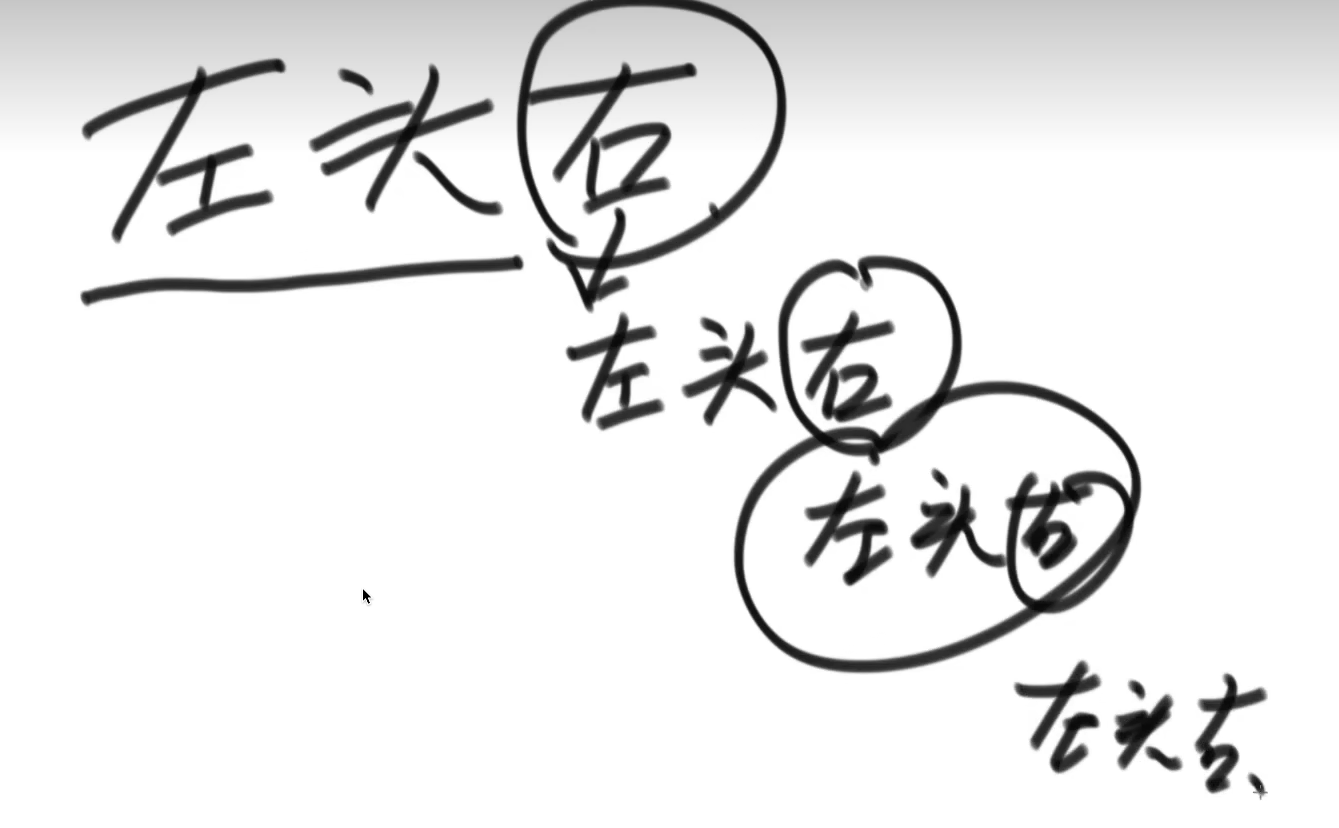 左头右
左头右
左头右
左头右